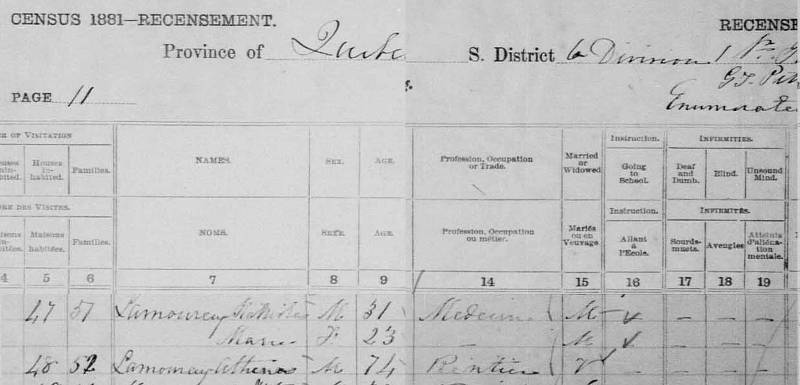 CENSUS 1881—RECENSEMENT.
RECENSE
Province of Quebe
S. District 6 Division 1
PAGE 11
Enumerate
E OF VISITATION
Instruction.
INFIRMITIES.
Houses in-habited.
Families.
NAMES.
SEX.
AGE.
Profession, Occupation or Trade.
Married or Widowed
Going to School.
Deaf and Dumb.
Blind.
Unsound Mind.
RE DES VISITES.
Instruction.
INFIRMITÉS.
Maisons habitées.
Familles.
NOMS.
SEXE.
AGE.
Profession, Occupation ou métier.
Mariés ou en Veuvage.
Allant à l'Ecole.
Sourds-muets.
Aveugles
Atteints d'aliéna-tion mentale.
4 5 6 7 8 9 14 15 16 17 18 19
47 51 Lamoureux M 31 Medecin M — — —
Marie F 23 — M — — —
48 52 Lamouray M 74 Rentier V — — — —